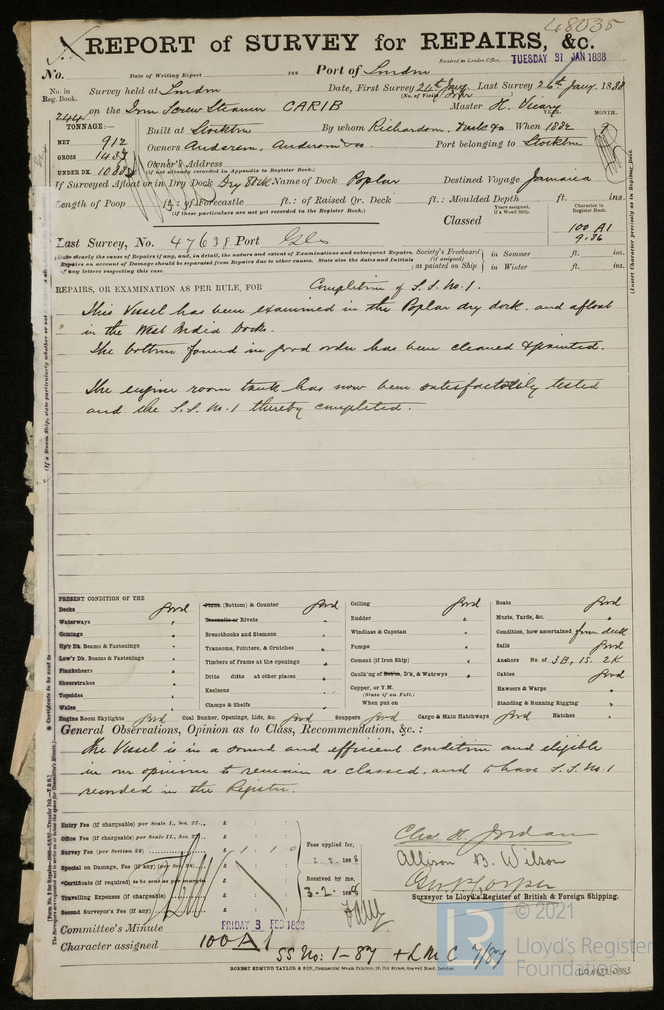 48035
REPORT of SURVEY for REPAIRS, &c.
Received in London Office, TUESDAY 31 JAN 1888
No. Date of Writing Report 188 Port of London
No. in Reg. Book. Survey held at London Date, First Survey 24th Jany Last Survey 26th Jany. 1888
(No. of Visits four)
244 on the Iron Screw Steamer CARIB Master H.
TONNAGE:— YEAR. MONTH.
NET 912 Built at Stockton By whom Richardson, Duck & Co When 1882 2
GROSS 1437 Owners Anderson, Anderson & Co. Port belonging to Stockton
UNDER DK. Owner's Address
(if not already recorded in Appendix to Register Book.)
If Surveyed Afloat or in Dry Dock Dry Dock Name of Dock Poplar Destined Voyage Jamaica
Length of Poop ft.: of Forecastle ft.: of Raised Qr. Deck ft.: Moulded Depth ft. ins.
(if these particulars are not yet recorded in the Register Book.)
Classed
Years assigned, if a Wood Ship.
Character in Register Book.
100 A1
9.86
Last Survey, No. 47638 Port Gls
(State clearly the cause of Repairs if any, and, in detail, the nature and extent of Examinations and subsequent Repairs. Repairs on account of Damage should be separated from Repairs due to other causes. State also the dates and Initials of any letters respecting this case.
Society's Freeboard (if assigned) as painted on Ship
in Summer ft. ins.
in Winter ft. ins.
REPAIRS, OR EXAMINATION AS PER RULE, FOR Completion of S.S. No. 1.
This Vessel has been examined in the Poplar dry dock, and afloat
in the West India Docks.
The bottom found in good order has been cleaned & painted.
The engine room tank has now been satisfactorily tested
and the S.S. No. 1 thereby completed.
PRESENT CONDITION OF THE
Decks good
Waterways "
Comings "
Up'r Dk. Beams & Fastenings "
Low'r Dk. Beams & Fastenings "
Planksheers "
Sheerstrakes "
Topsides "
Wales "
Plank (Bottom) & Counter good
Treenails or Rivets "
Breasthooks and Stemson "
Transoms, Pointers, & Crutches "
Timbers of Frame at the openings "
Ditto ditto at other places "
Keelsons "
Clamps & Shelfs "
Ceiling good
Rudder "
Windlass & Capstan "
Pumps "
Cement (if Iron Ship) "
Caulk'ng of Bot'm, D'k, & Watrwys "
Copper, or Y.M.
(State if on Felt.)
When put on
Boats good
Masts, Yards, &c. "
Condition, how ascertained from deck
Sails good
Anchors No. of 3B, 1S. 2K
Cables good
Hawsers & Warps "
Standing & Running Rigging "
Engine Room Skylights good Coal Bunker, Openings, Lids, &c. good Scuppers good Cargo & Main Hatchways good Hatches "
General Observations, Opinion as to Class, Recommendation, &c.:
The Vessel is in a sound and efficient condition and eligible
in our opinion to remain as classed, and to have S.S. No. 1
recorded in the Register.
Entry Fee (if chargeable) per Scale I., Sec. 27... £ : :
Office Fee (if chargeable) per Scale II., Sec. 27... £ : :
Survey Fee (per Section 28) £ 1 . 1 . 0
Special on Damage, Fee (if any) (per Sec. 28) £ : :
*Certificate (if required) to be sent as per margin £ : :
Travelling Expenses (if chargeable) £ : :
Second Surveyor's Fee (if any) £ : :
Fees applied for,
1. 2. 1888
Received by me,
3. 2. 1888
Chas. H. Jordan
Allison B. Wilson
Surveyor to Lloyd's Register of British & Foreign Shipping.
Committee's Minute FRIDAY 3 FEB 1888
Character assigned 100 A 1
SS No: 1-87 + LMC 7/87
ROBERT EDMUND TAYLOR & SON, Commercial Steam Printers, 19, Old Street, Goswell Road, London.
© 2021
Lloyd's Register
Foundation
LON632-0383